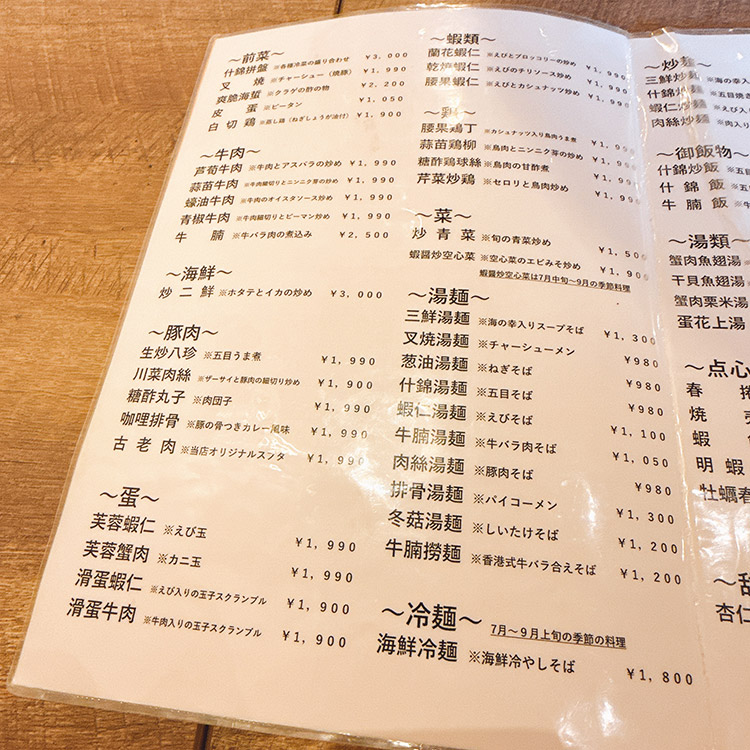 ～前菜～
什錦拼盤 ※各種冷菜の盛り合わせ ￥3,000
叉焼 ※チャーシュー(焼豚) ￥1,990
爽脆海蜇 ※クラゲの酢の物 ￥2,200
皮蛋 ※ピータン ￥1,050
白切鶏 ※蒸し鶏(ねぎしょうが油付) ￥1,900
～牛肉～
芦荀牛肉 ※牛肉とアスパラの炒め ￥1,990
蒜苗牛肉 ※牛肉細切りとニンニク芽の炒め ￥1,990
蠔油牛肉 ※牛肉のオイスタソース炒め ￥1,990
青椒牛肉 ※牛肉細切りとピーマン炒め ￥1,990
牛腩 ※牛バラ肉の煮込み ￥2,500
～海鮮～
炒二鮮 ※ホタテとイカの炒め ￥3,000
～豚肉～
生炒八珍 ※五目うま煮 ￥1,990
川菜肉絲 ※ザーサイと豚肉の細切り炒め ￥1,900
糖酢丸子 ※肉団子 ￥1,990
咖哩排骨 ※豚の骨つきカレー風味 ￥1,990
古老肉 ※当店オリジナルスブタ ￥1,990
～蛋～
芙蓉蝦仁 ※えび玉 ￥1,990
芙蓉蟹肉 ※カニ玉 ￥1,990
滑蛋蝦仁 ※えび入りの玉子スクランブル ￥1,900
滑蛋牛肉 ※牛肉入りの玉子スクランブル ￥1,900
～蝦類～
蘭花蝦仁 ※えびとブロッコリーの炒め ￥1,990
乾焼蝦仁 ※えびのチリソース炒め ￥1,990
腰果蝦仁 ※えびとカシュナッツ炒め ￥1,990
～鶏～
腰果鶏丁 ※カシュナッツ入り鳥肉うま煮 ￥1,990
蒜苗鶏柳 ※鳥肉とニンニク芽の炒め ￥1,990
糖酢鶏球絲 ※鳥肉の甘酢煮 ￥1,990
芹菜炒鶏 ※セロリと鳥肉炒め ￥1,990
～菜～
炒青菜 ※旬の青菜炒め ￥1,500
蝦醤炒空心菜 ※空心菜のエビみそ炒め ￥1,900
蝦醤炒空心菜は7月中旬～9月の季節料理
～湯麺～
三鮮湯麺 ※海の幸入りスープそば ￥1,300
叉焼湯麺 ※チャーシューメン ￥980
葱油湯麺 ※ねぎそば ￥980
什錦湯麺 ※五目そば ￥980
蝦仁湯麺 ※えびそば ￥1,100
牛腩湯麺 ※牛バラ肉そば ￥1,050
肉絲湯麺 ※豚肉そば ￥980
排骨湯麺 ※パイコーメン ￥1,300
冬菇湯麺 ※しいたけそば ￥1,200
牛腩撈麺 ※香港式牛バラ合えそば ￥1,200
～冷麺～ 7月～9月上旬の季節の料理
海鮮冷麺 ※海鮮冷やしそば ￥1,800
～炒麺～
三鮮炒麺 ※海の幸
什錦炒麺 ※五目焼き
蝦仁炒麺 ※えび入り
肉絲炒麺 ※肉入り
～御飯物～
什錦炒飯 ※五目
什錦飯 ※五目
牛腩飯 ※牛バ
～湯類～
蟹肉魚翅湯
干貝魚翅湯
蟹肉栗米湯
蛋花上湯
～点心
春捲
焼売
蝦
明蝦
牡蠣春
～甜
杏仁